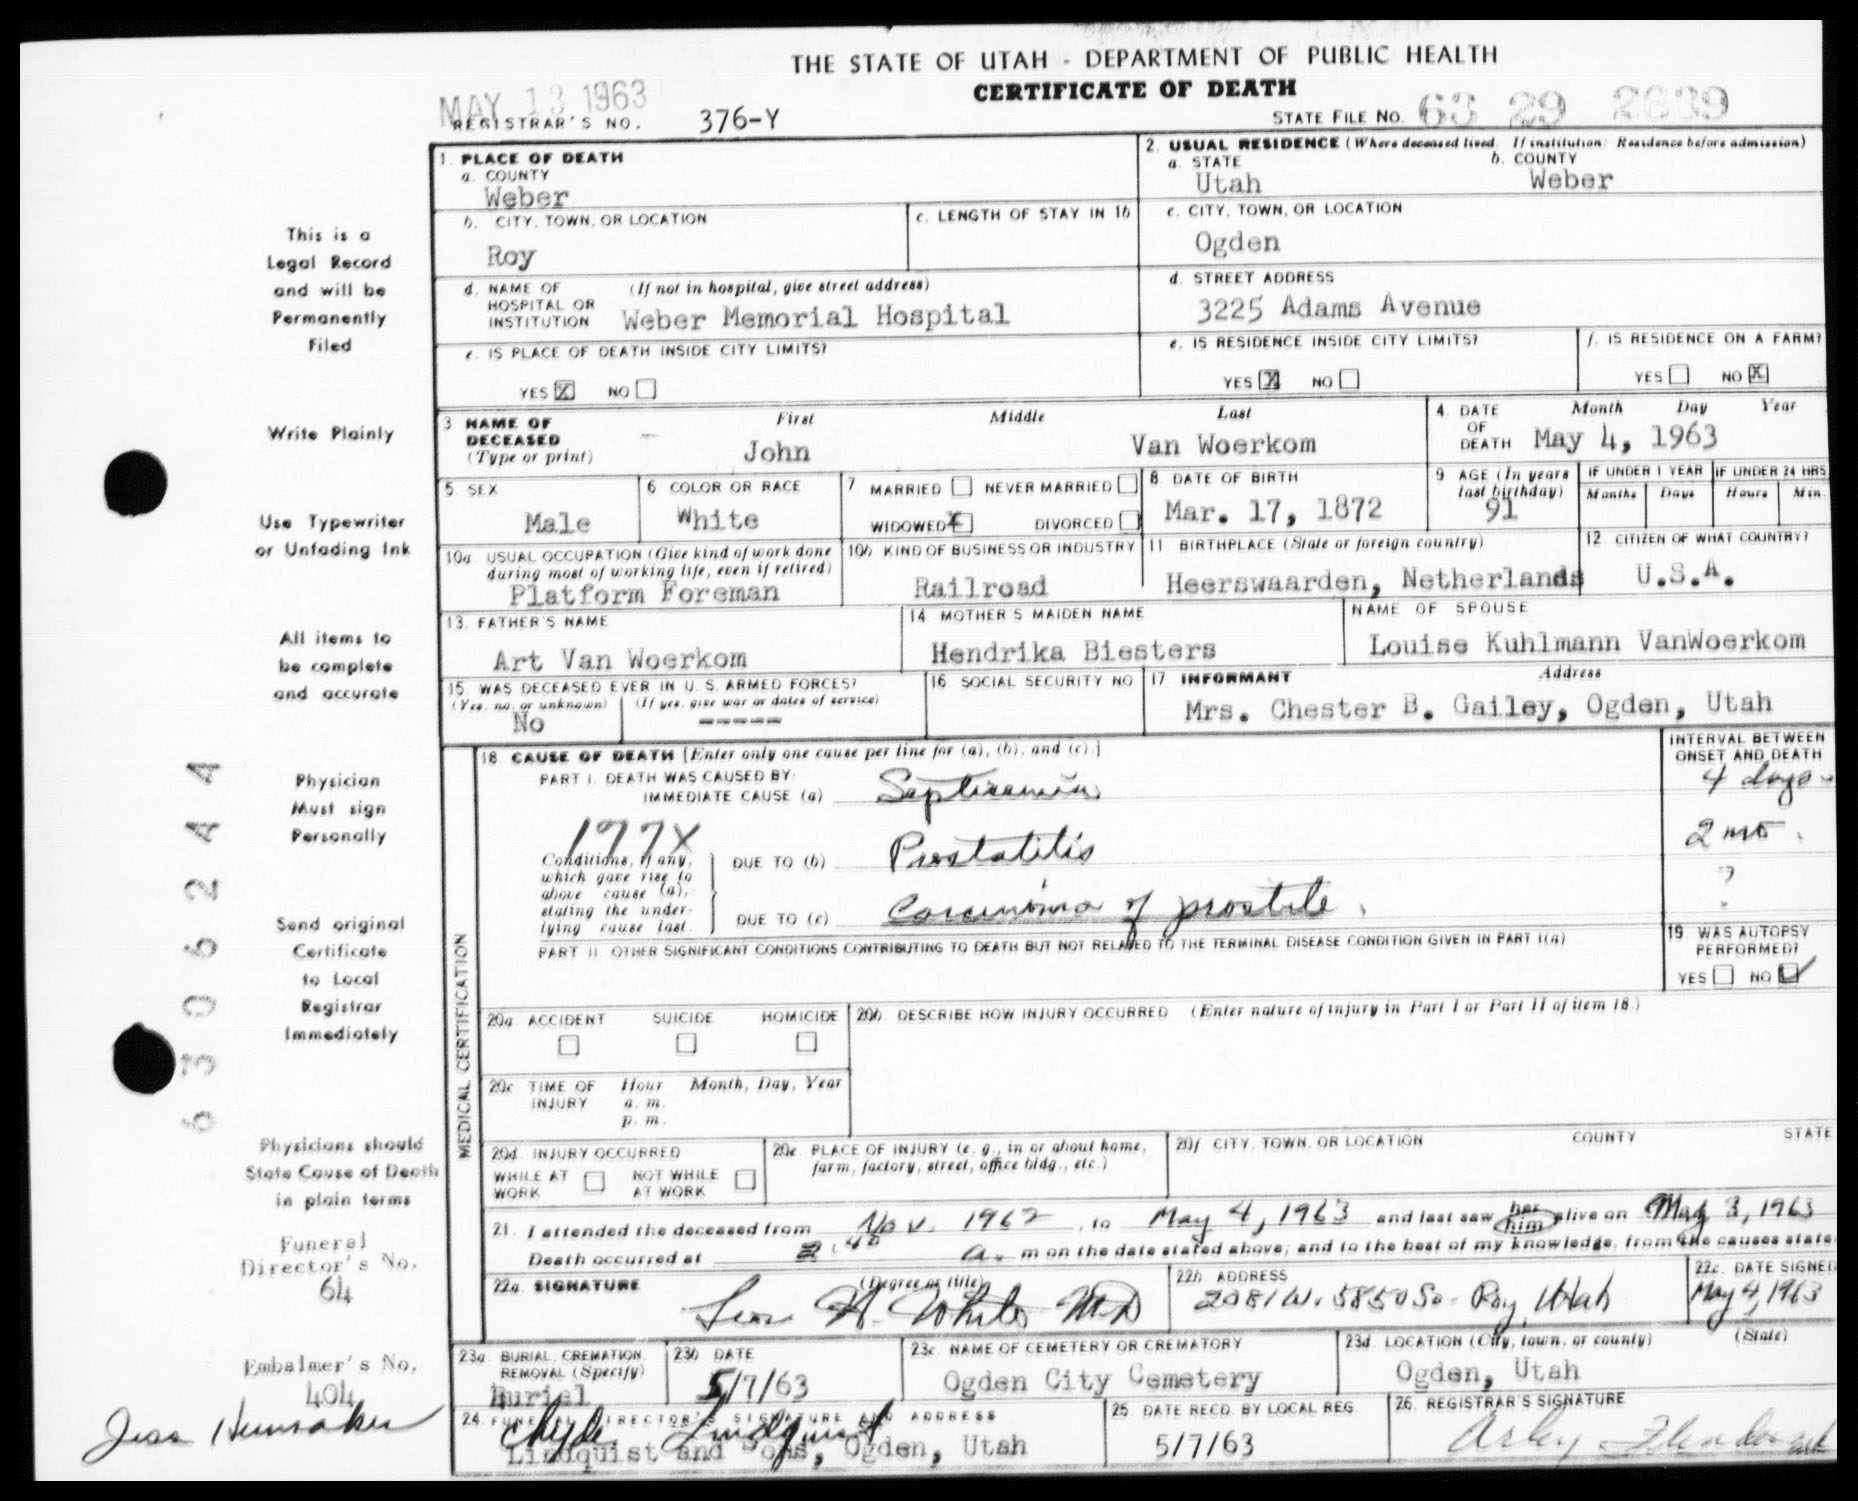 THE STATE OF UTAH - DEPARTMENT OF PUBLIC HEALTH
CERTIFICATE OF DEATH
MAY 13 1963
REGISTRAR'S NO. 376-Y
STATE FILE NO. 63 29 2639
1. PLACE OF DEATH
a. COUNTY
Weber
2. USUAL RESIDENCE (Where deceased lived. If institution: Residence before admission)
a. STATE b. COUNTY
Utah Weber
b. CITY, TOWN, OR LOCATION
Roy
c. LENGTH OF STAY IN 1b
c. CITY, TOWN, OR LOCATION
Ogden
d. NAME OF HOSPITAL OR INSTITUTION (If not in hospital, give street address)
Weber Memorial Hospital
d. STREET ADDRESS
3225 Adams Avenue
e. IS PLACE OF DEATH INSIDE CITY LIMITS?
YES X NO
e. IS RESIDENCE INSIDE CITY LIMITS?
YES X NO
f. IS RESIDENCE ON A FARM?
YES NO X
3 NAME OF DECEASED (Type or print) First Middle Last
John Van Woerkom
4. DATE OF DEATH Month Day Year
May 4, 1963
5 SEX
Male
6 COLOR OR RACE
White
7 MARRIED NEVER MARRIED
WIDOWED X DIVORCED
8 DATE OF BIRTH
Mar. 17, 1872
9 AGE (In years last birthday)
91
IF UNDER 1 YEAR IF UNDER 24 HRS.
Months Days Hours Min.
10a USUAL OCCUPATION (Give kind of work done during most of working life, even if retired)
Platform Foreman
10b KIND OF BUSINESS OR INDUSTRY
Railroad
11 BIRTHPLACE (State or foreign country)
Heerswaarden, Netherlands
12 CITIZEN OF WHAT COUNTRY?
U.S.A.
13. FATHER'S NAME
Art Van Woerkom
14 MOTHER'S MAIDEN NAME
Hendrika Biesters
NAME OF SPOUSE
Louise Kuhlmann VanWoerkom
15 WAS DECEASED EVER IN U. S. ARMED FORCES?
(Yes, no, or unknown) (If yes, give war or dates of service)
No -----
16 SOCIAL SECURITY NO.
17 INFORMANT Address
Mrs. Chester B. Gailey, Ogden, Utah
MEDICAL CERTIFICATION
18 CAUSE OF DEATH [Enter only one cause per line for (a), (b), and (c).]
INTERVAL BETWEEN ONSET AND DEATH
PART I. DEATH WAS CAUSED BY:
IMMEDIATE CAUSE (a) Septicemia 4 days
177X
Conditions, if any, which gave rise to above cause (a), stating the underlying cause last.
DUE TO (b) Prostatitis 2 mo.
DUE TO (c) Carcinoma of prostate. ?
PART II. OTHER SIGNIFICANT CONDITIONS CONTRIBUTING TO DEATH BUT NOT RELATED TO THE TERMINAL DISEASE CONDITION GIVEN IN PART I(a)
19 WAS AUTOPSY PERFORMED?
YES NO ✓
20a ACCIDENT SUICIDE HOMICIDE
20b DESCRIBE HOW INJURY OCCURRED (Enter nature of injury in Part I or Part II of item 18.)
20c TIME OF INJURY Hour Month, Day, Year
a. m.
p. m.
20d INJURY OCCURRED
WHILE AT WORK NOT WHILE AT WORK
20e PLACE OF INJURY (e. g., in or about home, farm, factory, street, office bldg., etc.)
20f CITY, TOWN, OR LOCATION COUNTY STATE
21. I attended the deceased from Nov. 1962, to May 4, 1963 and last saw her him alive on May 3, 1963
Death occurred at 2:40 a. m on the date stated above; and to the best of my knowledge, from the causes state
22a SIGNATURE (Degree or title)
Leon H. White MD
22b ADDRESS
2081 W. 5850 So- Roy, Utah
22c. DATE SIGNED
May 4, 1963
23a. BURIAL, CREMATION, REMOVAL (Specify)
Burial
23b DATE
5/7/63
23c NAME OF CEMETERY OR CREMATORY
Ogden City Cemetery
23d LOCATION (City, town, or county) (State)
Ogden, Utah
24. FUNERAL DIRECTOR'S SIGNATURE AND ADDRESS
Clyde Lindquist
Lindquist and Sons, Ogden, Utah
25 DATE RECD. BY LOCAL REG.
5/7/63
26. REGISTRAR'S SIGNATURE
This is a
Legal Record
and will be
Permanently
Filed
Write Plainly
Use Typewriter
or Unfading Ink
All items to
be complete
and accurate
Physician
Must sign
Personally
Send original
Certificate
to Local
Registrar
Immediately
Physicians should
State Cause of Death
in plain terms
Funeral
Director's No.
64
Embalmer's No.
404
Jess Hunsaker
6306244